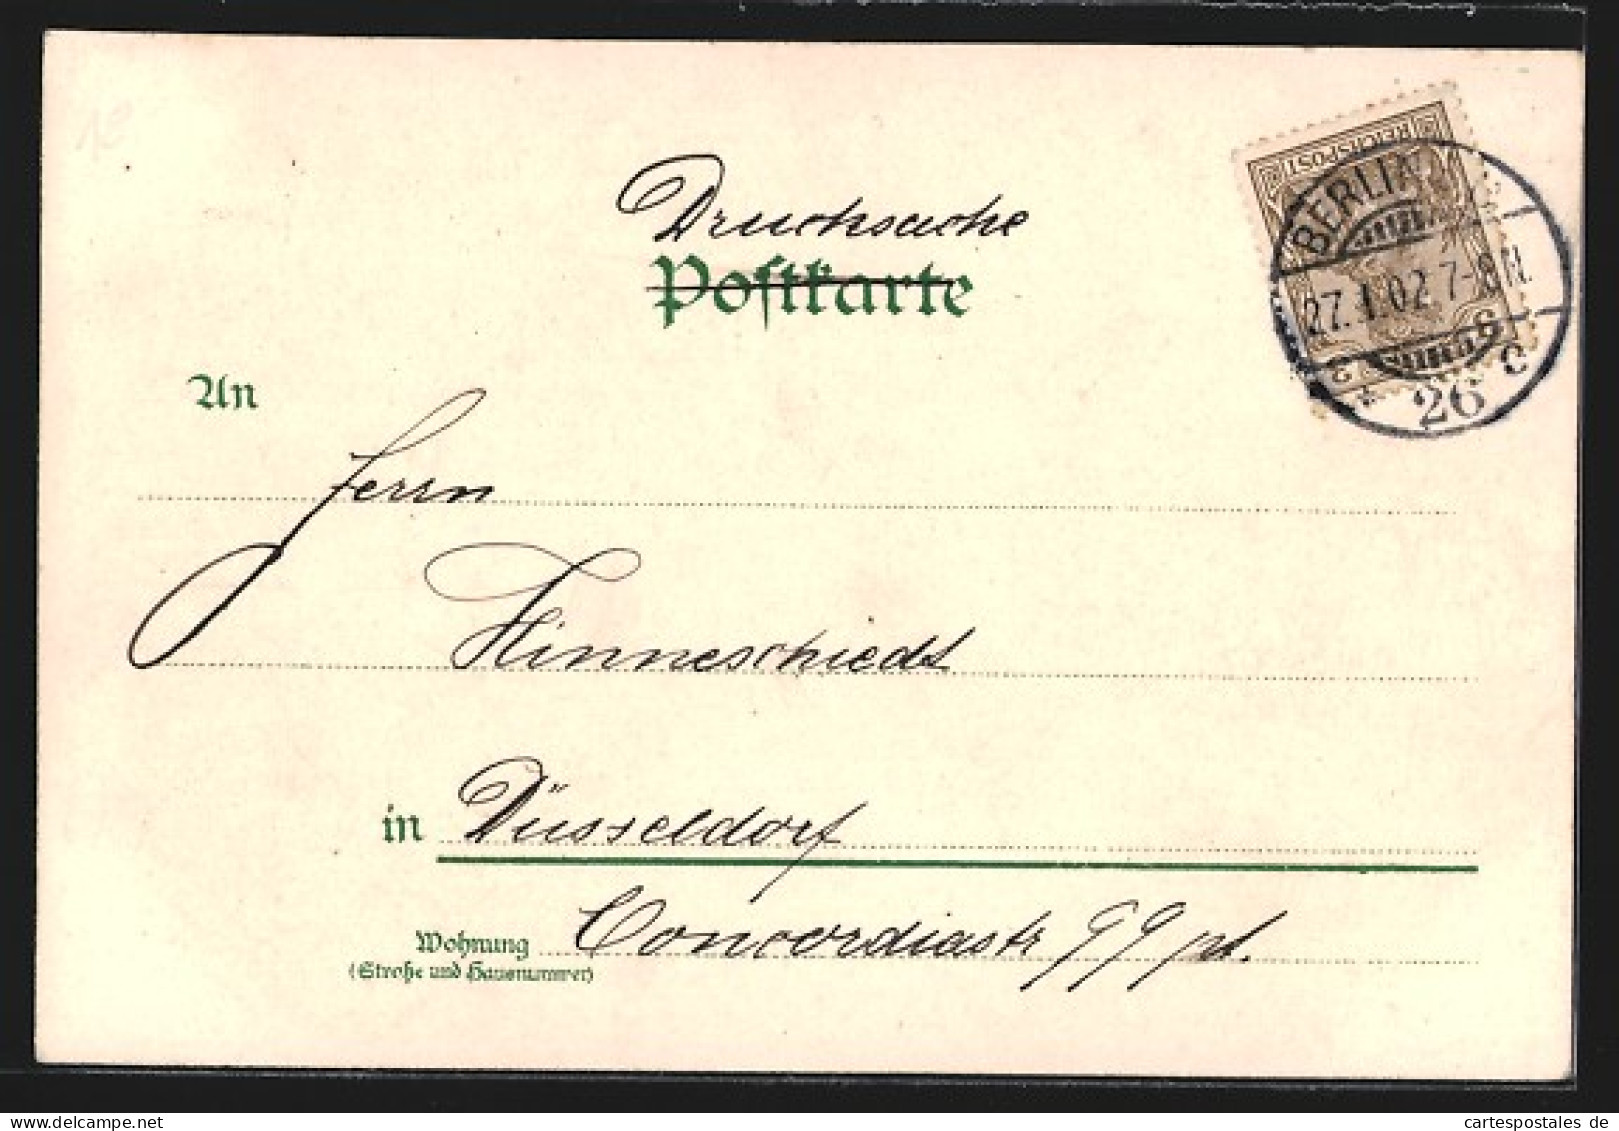 Drucksache
Postkarte
REICHSPOST
BERLIN
27.1.02 7-8 N.
26
An
Herrn
Hinneschiedt
in Düsseldorf
Wohnung Concordiastr 99 pt.
(Straße und Hausnummer)
cartespostales.de